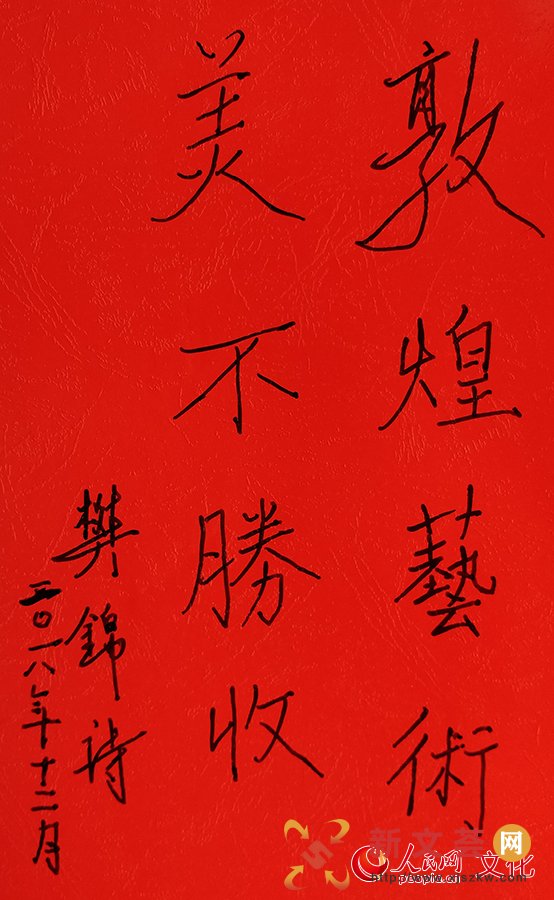 敦煌藝術
美不勝收
樊錦詩
二〇一八年十二月
新文荟网
人民网 文化
people.cn